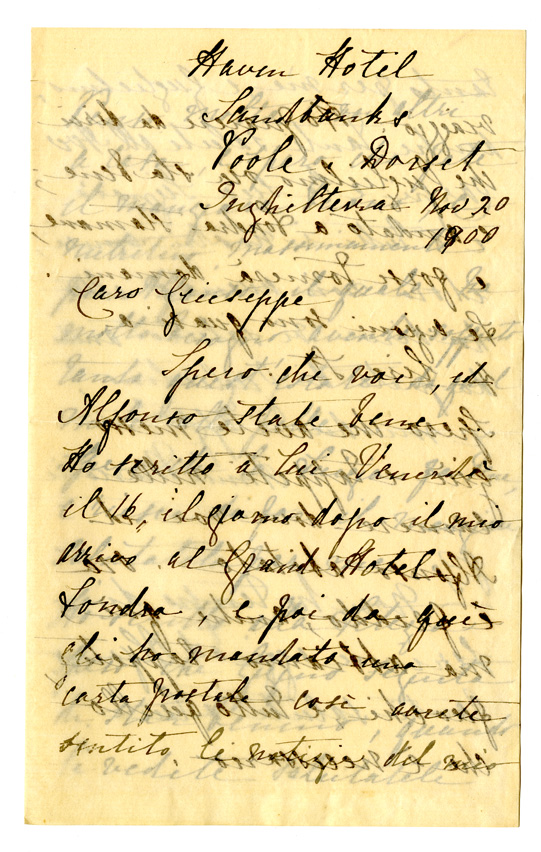 Haven Hotel
Sandbanks
Poole, Dorset
Inghilterra Nov 20
1900
Caro Giuseppe
Spero che voi, ed
Alfonso state bene
Ho scritto a lui Venerdì
il 16, il giorno dopo il mio
arrivo al Grand Hotel,
Londra, e poi da qui
gli ho mandato una
carta postale così avrete
sentito le notizie del mio